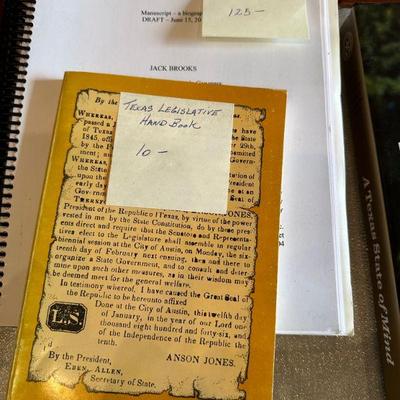 Manuscript – a biograp
DRAFT – June 15, 20
125.-
JACK BROOKS
By the
WHEREAS,
passed a
of Texas
1845, off
by the P
ment; a
WHEREAS
the State
tution
President
early day
Govern
THEREF
TEXAS LEGISLATIVE
HAND BOOK
10 -
have
the State
29th,
examined
JONES,
President of the Republic of Texas, by virtue of the power
vested in me by the State Constitution, do by these pres-
ents direct and require that the Senators and Representa-
tives elect to the Legislature shall assemble in regular
biennial session at the City of Austin, on Monday, the six-
teenth day of February next ensuing, then and there to
organize a State Government, and to consider and deter-
mine upon such other measures, as in their wisdom may
be deemed meet for the general welfare.
In testimony wherof, I have caused the Great Seal of
the Republic to be hereunto affixed
Done at the City of Austin, this twelfth day
of January, in the year of our Lord one
thousand eight hundred and forty-six, and
of the Independence of the Republic the
tenth.
L.S
ANSON JONES.
By the President,
EBEN. ALLEN,
Secretary of State.
A Texas State of Mind